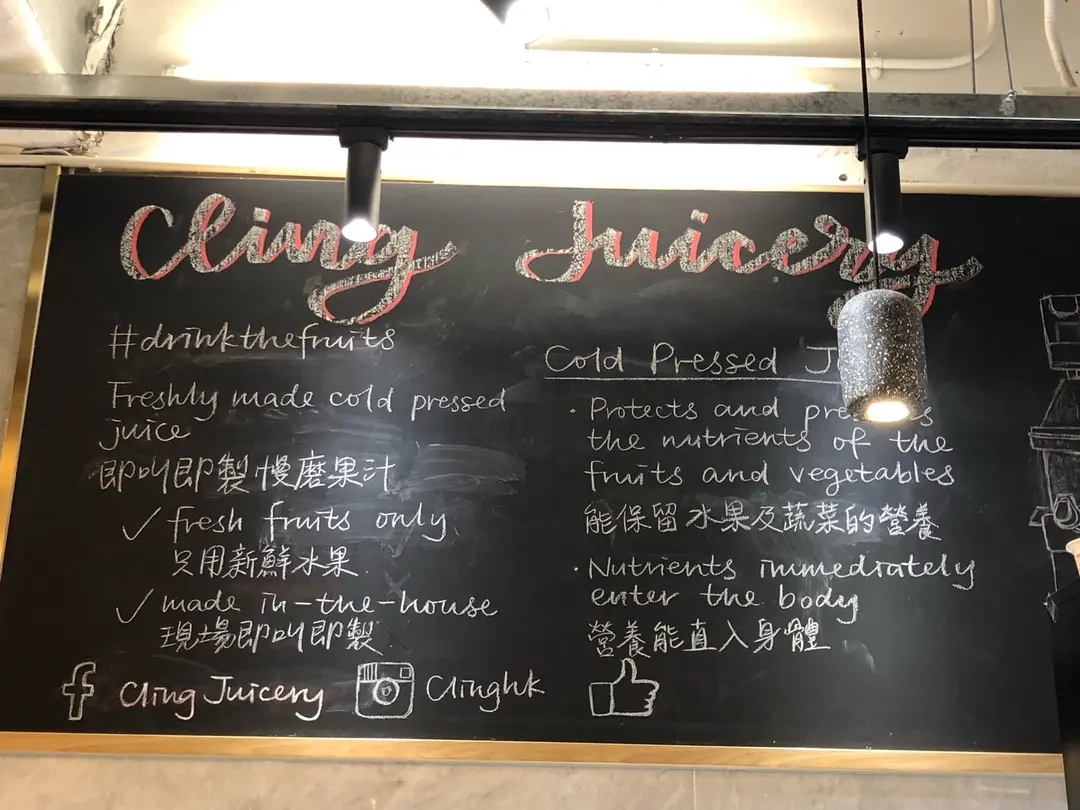 Cling Juicery
#drinkthefruits
Freshly made cold pressed
juice
即叫即製慢磨果汁
✓ fresh fruits only
只用新鮮水果
✓ made in-the-house
現場即叫即製
Cling Juicery
Clinghk
Cold Pressed
· Protects and
the nutrients of the
fruits and vegetables
能保留水果及蔬菜的營養
· Nutrients immediately
enter the body
營養能直入身體